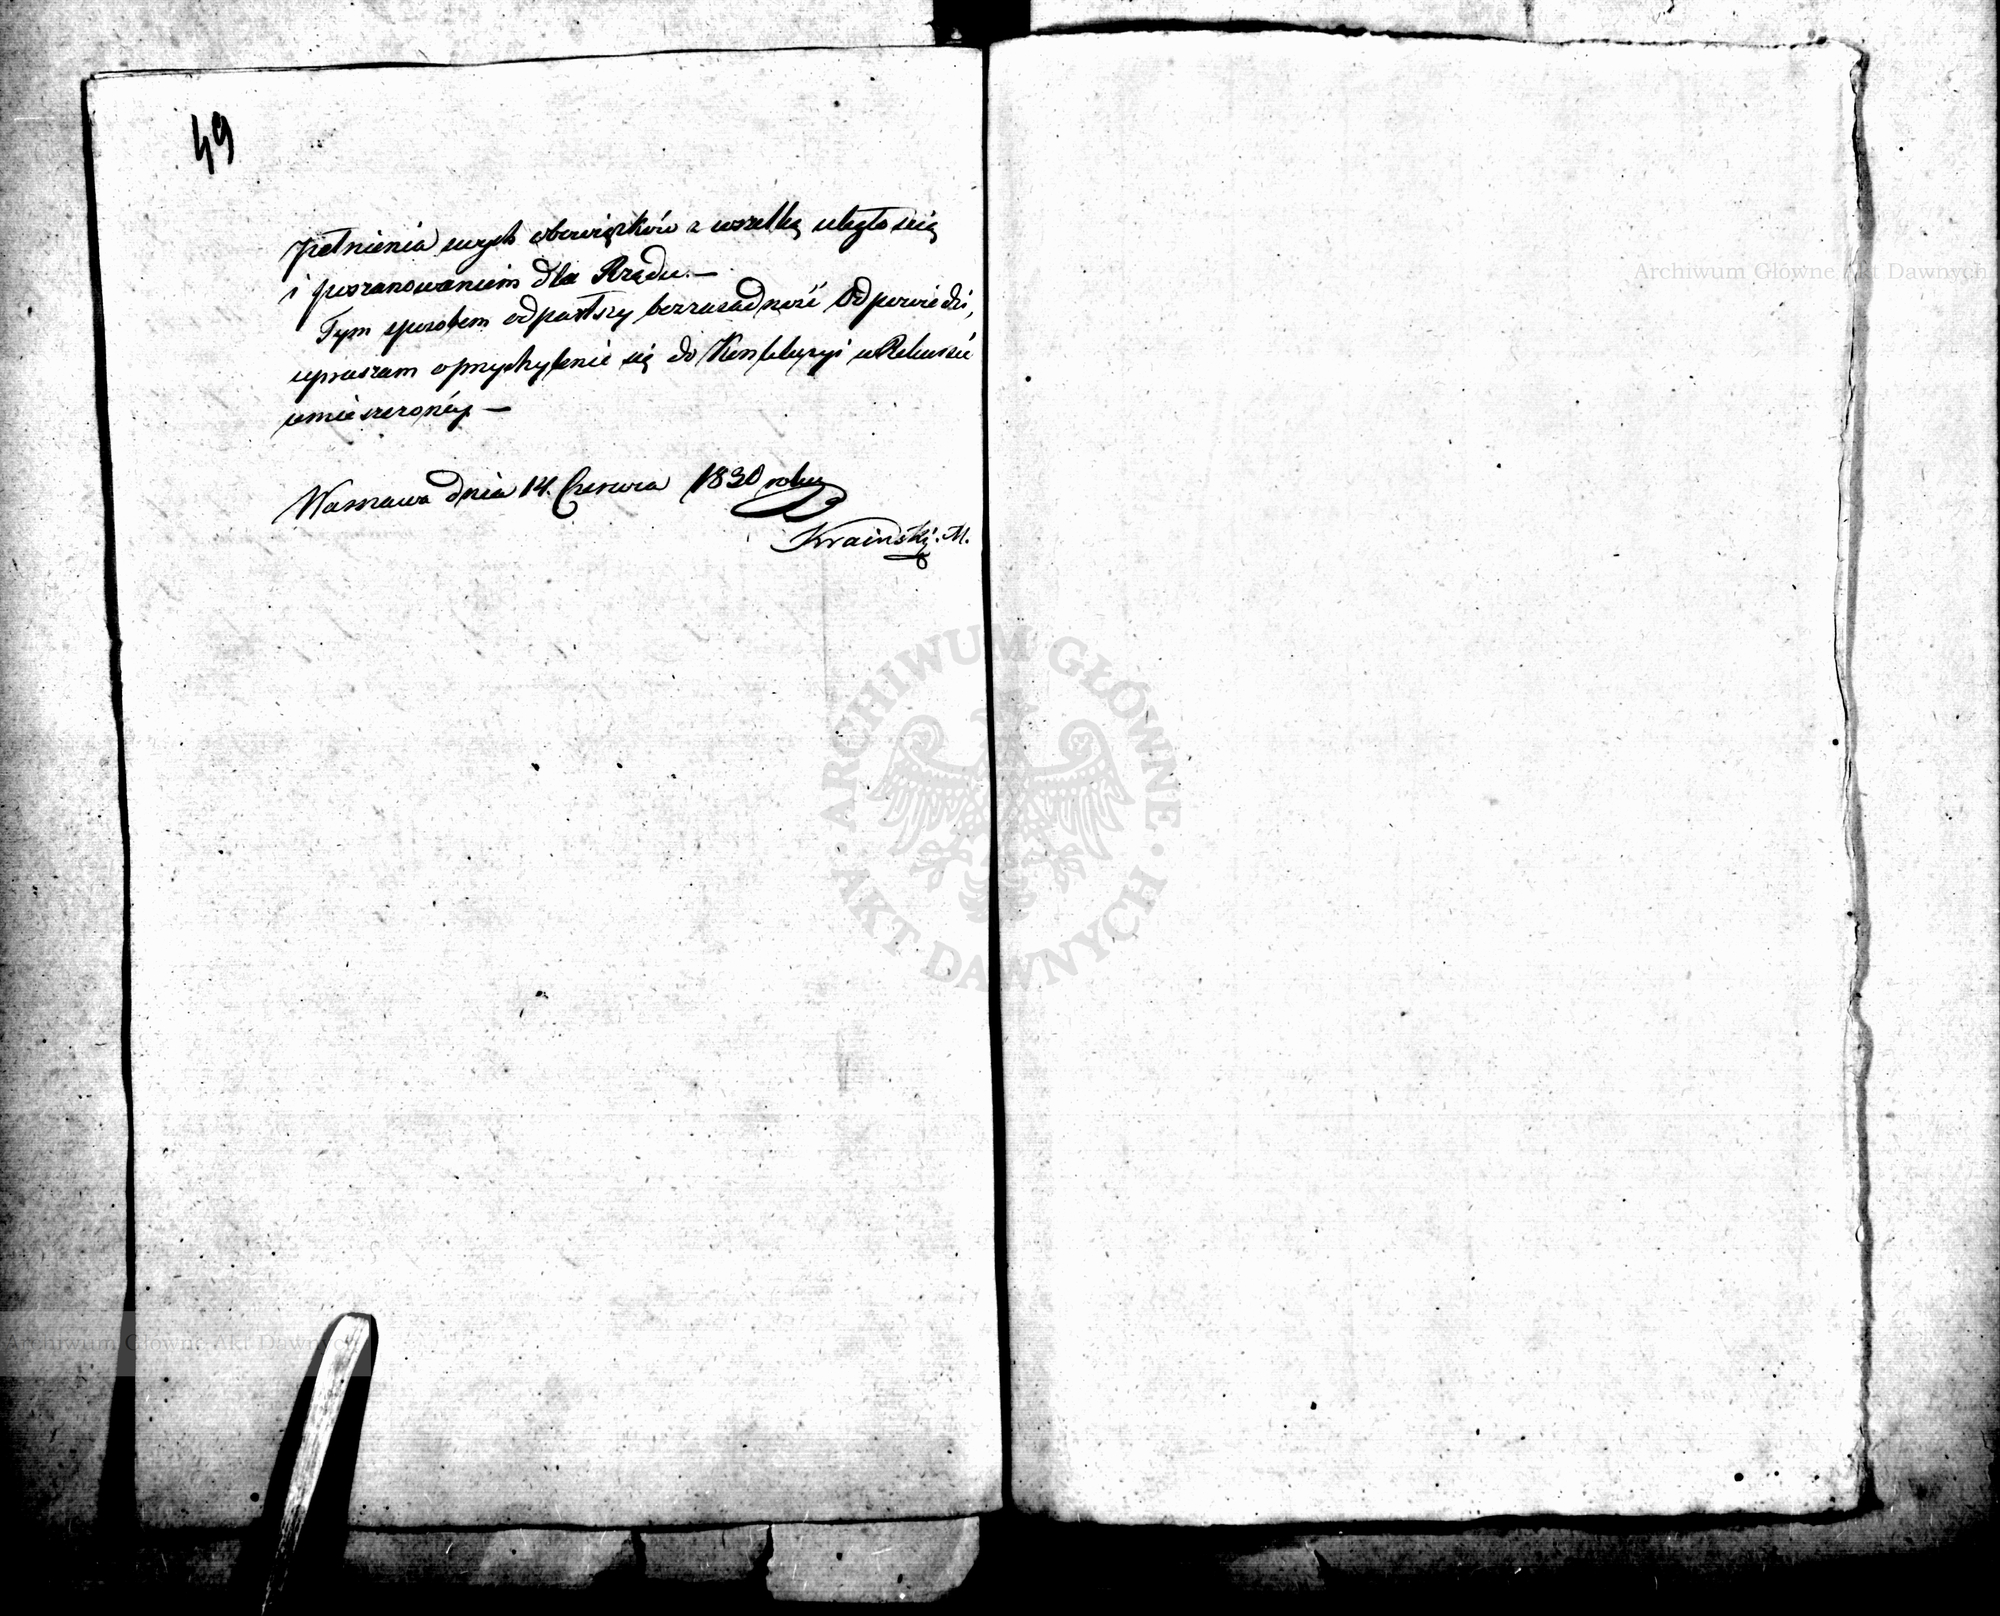 49
pełnienia swych obowiązków z wszelką uległością
i poszanowaniem dla Rządu. —
Tym sposobem odpartszy bezzasadność Odpowiedzi,
upraszam o przychylenie się do Konkluzyi w Rekursie
umieszczonéy. —
Warszawa dnia 14. Czerwca 1830 roku
Kraiński. M.
Archiwum Główne Akt Dawnych
ARCHIWUM GŁÓWNE
AKT DAWNYCH
Archiwum Główne Akt Dawnych